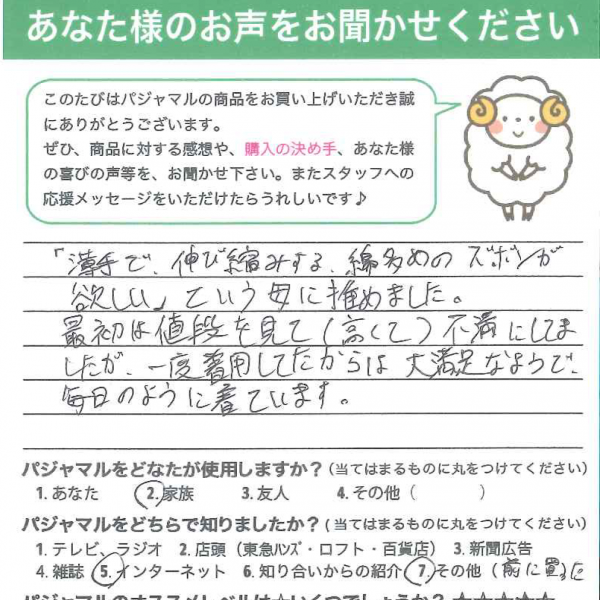 あなた様のお声をお聞かせください
このたびはパジャマルの商品をお買い上げいただき誠
にありがとうございます。
ぜひ、商品に対する感想や、購入の決め手、あなた様
の喜びの声等を、お聞かせ下さい。またスタッフへの
応援メッセージをいただけたらうれしいです♪
「薄手で、伸び縮みする、綿多めのズボンが
欲しい」という母に推めました。
最初は値段を見て(高くて)不満にしてま
したが、一度着用してたからは大満足なようで、
毎日のように着ています。
パジャマルをどなたが使用しますか?(当てはまるものに丸をつけてください)
1. あなた 2. 家族 3. 友人 4. その他( )
パジャマルをどちらで知りましたか?(当てはまるものに丸をつけてください)
1. テレビ、ラジオ 2. 店頭(東急ハンズ・ロフト・百貨店) 3. 新聞広告
4. 雑誌 5. インターネット 6. 知り合いからの紹介 7. その他(前に買った
パジャマルのオススメレベルは☆いくつでしょうか?★★★★★